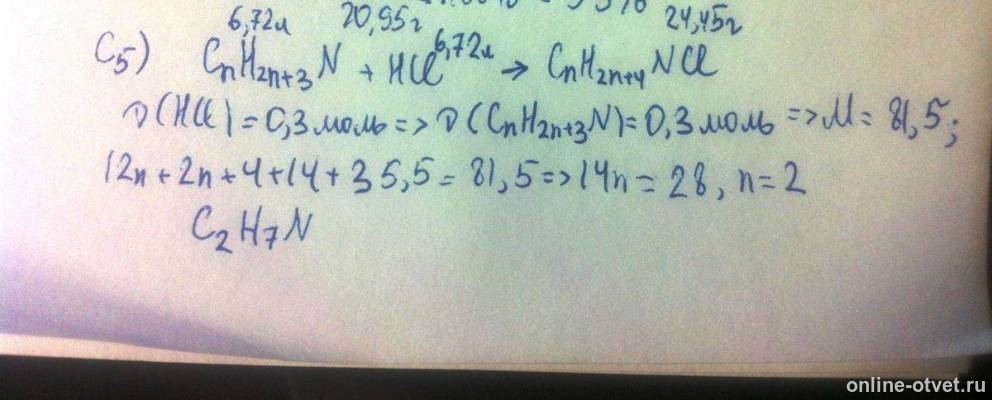 6,72л 20,95г 24,45г
C5) CnH2n+3N + HCl 6,72л → CnH2n+4NCl
ν(HCl) = 0,3моль => ν(CnH2n+3N) = 0,3моль => M = 81,5;
12n + 2n + 4 + 14 + 35,5 = 81,5 => 14n = 28, n = 2
C2H7N
online-otvet.ru